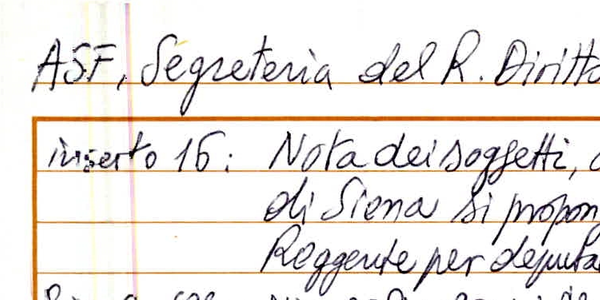 ASF, Segreteria del R. Diritto
inserto 16: Nota dei soggetti,
di Siena si propon
Reggente per deputa